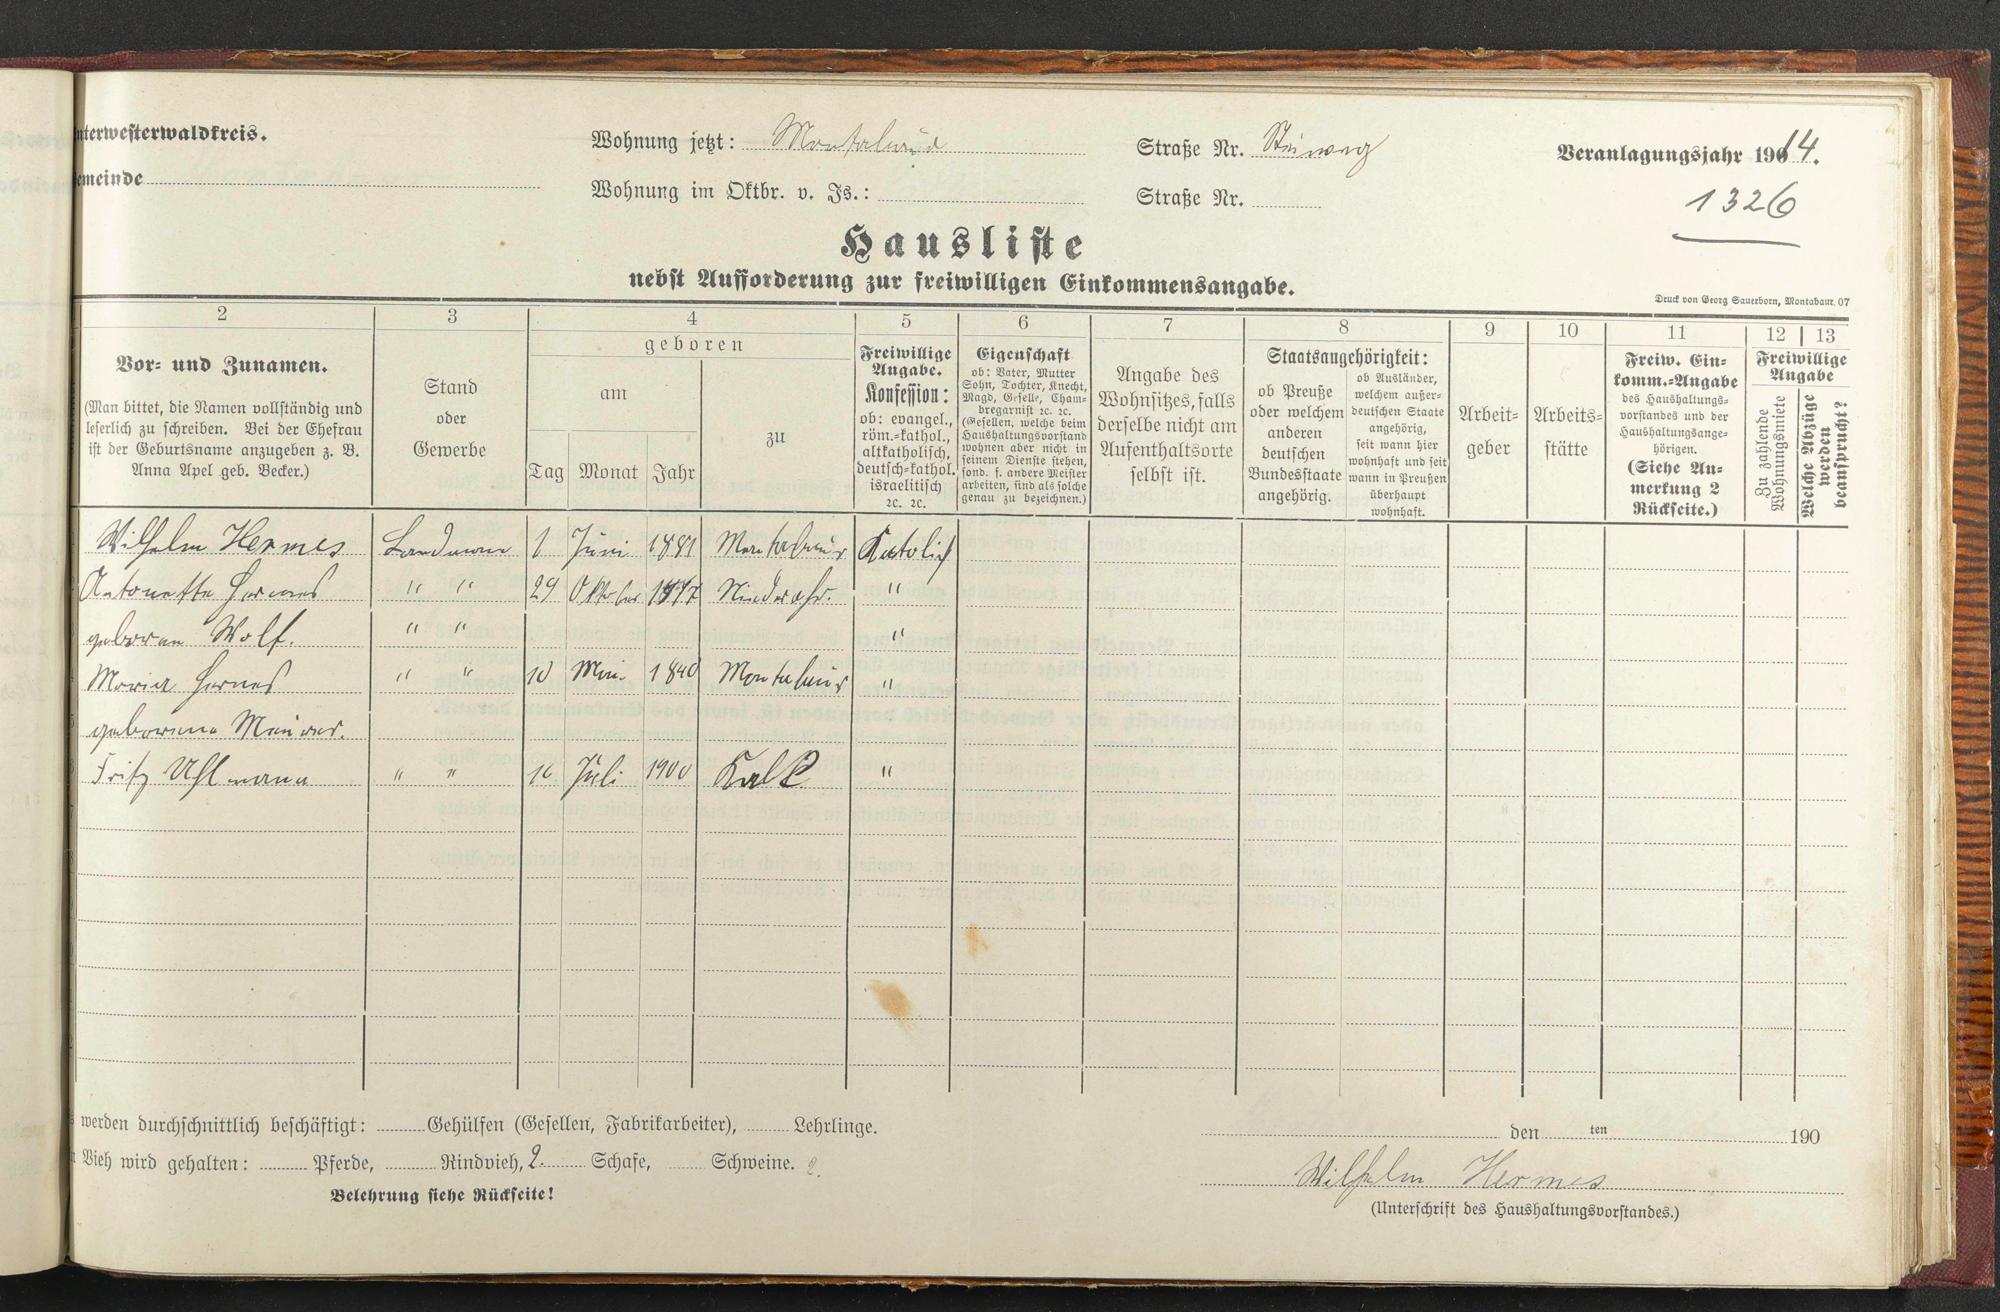 nterwesterwaldkreis.
emeinde
Wohnung jetzt: Montabaur
Wohnung im Oktbr. v. Js.:
Straße Nr. Steinweg
Straße Nr.
Veranlagungsjahr 1914.
1326
Hausliste
nebst Aufforderung zur freiwilligen Einkommensangabe.
Druck von Georg Sauerborn, Montabaur. 07
2 3 4 5 6 7 8 9 10 11 12 13
Vor- und Zunamen.
(Man bittet, die Namen vollständig und
leserlich zu schreiben. Bei der Ehefrau
ist der Geburtsname anzugeben z. B.
Anna Apel geb. Becker.)
Stand
oder
Gewerbe
geboren
am
Tag Monat Jahr
zu
Freiwillige
Angabe.
Konfession:
ob: evangel.,
röm.-kathol.,
altkatholisch,
deutsch-kathol.
israelitisch
ꝛc. ꝛc.
Eigenschaft
ob: Vater, Mutter
Sohn, Tochter, Knecht,
Magd, Geselle, Cham-
bregarnist ꝛc. ꝛc.
(Gesellen, welche beim
Haushaltungsvorstand
wohnen aber nicht in
seinem Dienste stehen,
sond. f. andere Meister
arbeiten, sind als solche
genau zu bezeichnen.)
Angabe des
Wohnsitzes, falls
derselbe nicht am
Aufenthaltsorte
selbst ist.
Staatsangehörigkeit:
ob Preuße
oder welchem
anderen
deutschen
Bundesstaate
angehörig.
ob Ausländer,
welchem außer-
deutschen Staate
angehörig,
seit wann hier
wohnhaft und seit
wann in Preußen
überhaupt
wohnhaft.
Arbeit-
geber
Arbeits-
stätte
Freiw. Ein-
komm.-Angabe
des Haushaltungs-
vorstandes und der
Haushaltungsange-
hörigen.
(Siehe An-
merkung 2
Rückseite.)
Freiwillige
Angabe
Zu zahlende
Wohnungsmiete
Welche Abzüge
werden
beansprucht?
Wilhelm Hermes Landmann 1 Juni 1881 Montabaur Katolisch
Antonetta Hermes " " 29 Oktober Niederahr. "
geboren Wolf. " " "
Maria Hermes " " 10 Mai 1840 Montabaur "
geborene Meurer.
Fritz Uhlmann " " Juli 1900 Kalk "
werden durchschnittlich beschäftigt: Gehülfen (Gesellen, Fabrikarbeiter), Lehrlinge.
Vieh wird gehalten: Pferde, Rindvieh, 2. Schafe, Schweine. 2.
Belehrung siehe Rückseite!
den ten 190
Wilhelm Hermes
(Unterschrift des Haushaltungsvorstandes.)